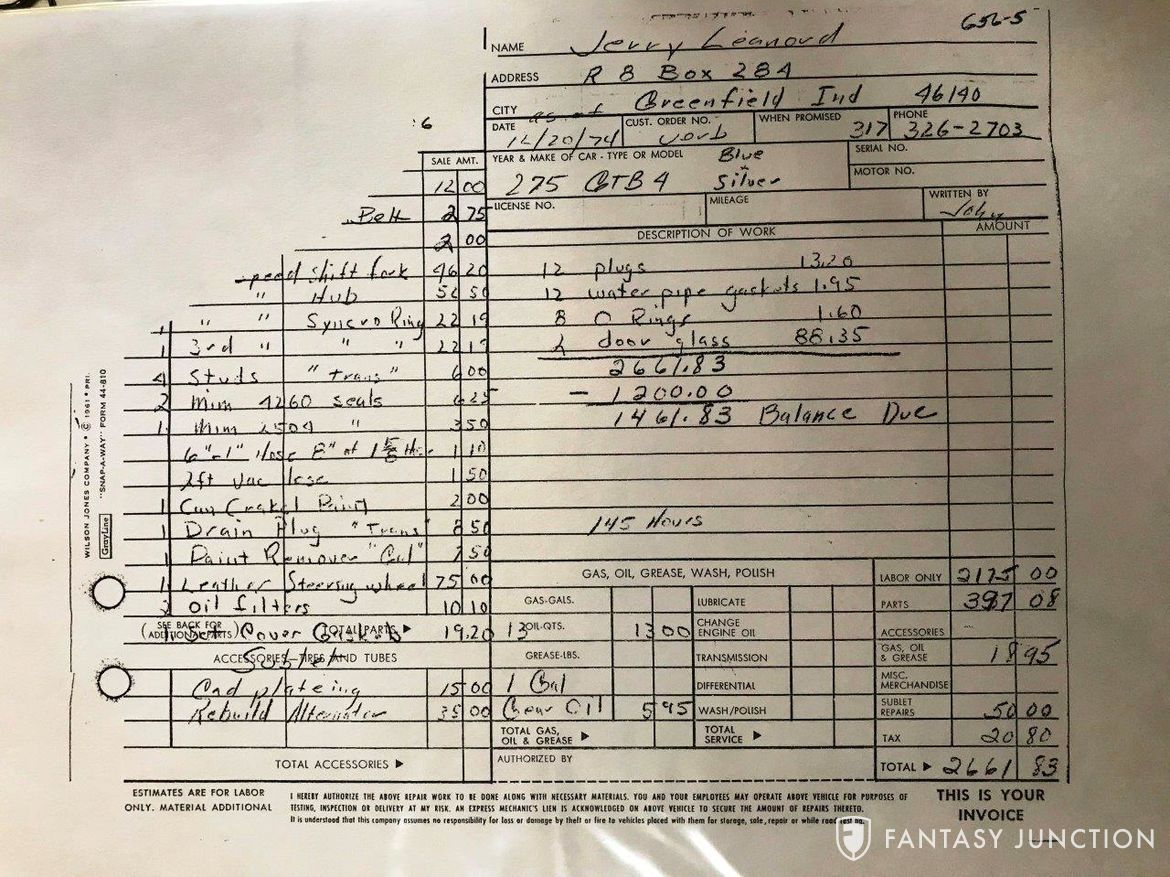 656-5
NAME Jerry Leanord
ADDRESS R 8 Box 284
CITY Greenfield Ind 46140
DATE 12/20/74 CUST. ORDER NO. verb WHEN PROMISED PHONE 317 326-2703
:6
YEAR & MAKE OF CAR - TYPE OR MODEL 275 GTB4 Blue + Silver
SERIAL NO.
MOTOR NO.
LICENSE NO. MILEAGE WRITTEN BY John
SALE AMT.
12 00
Belt 2 75
2 00
peed shift fork 46 20
" Hub 56 50
1 " " Syncro Ring 22 19
1 3rd " " " 22 19
4 Studs "trans" 6 00
2 Mim 4260 seals 6 25
1 Mim 2504 " 3 50
6"-1" Hose 8" of 1 5/8 Hose 1 10
2ft Vac 1 50
1 Can Crakel Paint 2 00
1 Drain Plug "Trans" 8 50
1 Paint Remover "Gal" 7 50
1 Leather Steering wheel 75 00
2 oil filters 10 10
(SEE BACK FOR ADDITIONAL PARTS) TOTAL PARTS ▶ Cover Gaskets 19.20
ACCESSORIES—TIRES AND TUBES
Sublet
Cad plateing 15 00
Rebuild Alternator 35 00
TOTAL ACCESSORIES ▶
DESCRIPTION OF WORK AMOUNT
12 plugs 13.20
12 water pipe gaskets 1.95
8 O Rings 1.60
2 door glass 88.35
2661.83
- 1200.00
1461.83 Balance Due
145 Hours
GAS, OIL, GREASE, WASH, POLISH
GAS-GALS. LUBRICATE
13 OIL-QTS. 13 00 CHANGE ENGINE OIL
GREASE-LBS. TRANSMISSION
1 Gal DIFFERENTIAL
Gear Oil 5 95 WASH/POLISH
TOTAL GAS, OIL & GREASE ▶ TOTAL SERVICE ▶
AUTHORIZED BY
LABOR ONLY 2175 00
PARTS 397 08
ACCESSORIES
GAS, OIL & GREASE 18 95
MISC. MERCHANDISE
SUBLET REPAIRS 50 00
TAX 20 80
TOTAL ▶ 2661 83
WILSON JONES COMPANY • © 1961 • PRI.
GrayLine "SNAP-A-WAY" FORM 44-810
ESTIMATES ARE FOR LABOR ONLY. MATERIAL ADDITIONAL
I HEREBY AUTHORIZE THE ABOVE REPAIR WORK TO BE DONE ALONG WITH NECESSARY MATERIALS. YOU AND YOUR EMPLOYEES MAY OPERATE ABOVE VEHICLE FOR PURPOSES OF
TESTING, INSPECTION OR DELIVERY AT MY RISK. AN EXPRESS MECHANIC'S LIEN IS ACKNOWLEDGED ON ABOVE VEHICLE TO SECURE THE AMOUNT OF REPAIRS THERETO.
It is understood that this company assumes no responsibility for loss or damage by theft or fire to vehicles placed with them for storage, sale, repair or while road test ng.
THIS IS YOUR INVOICE
FANTASY JUNCTION